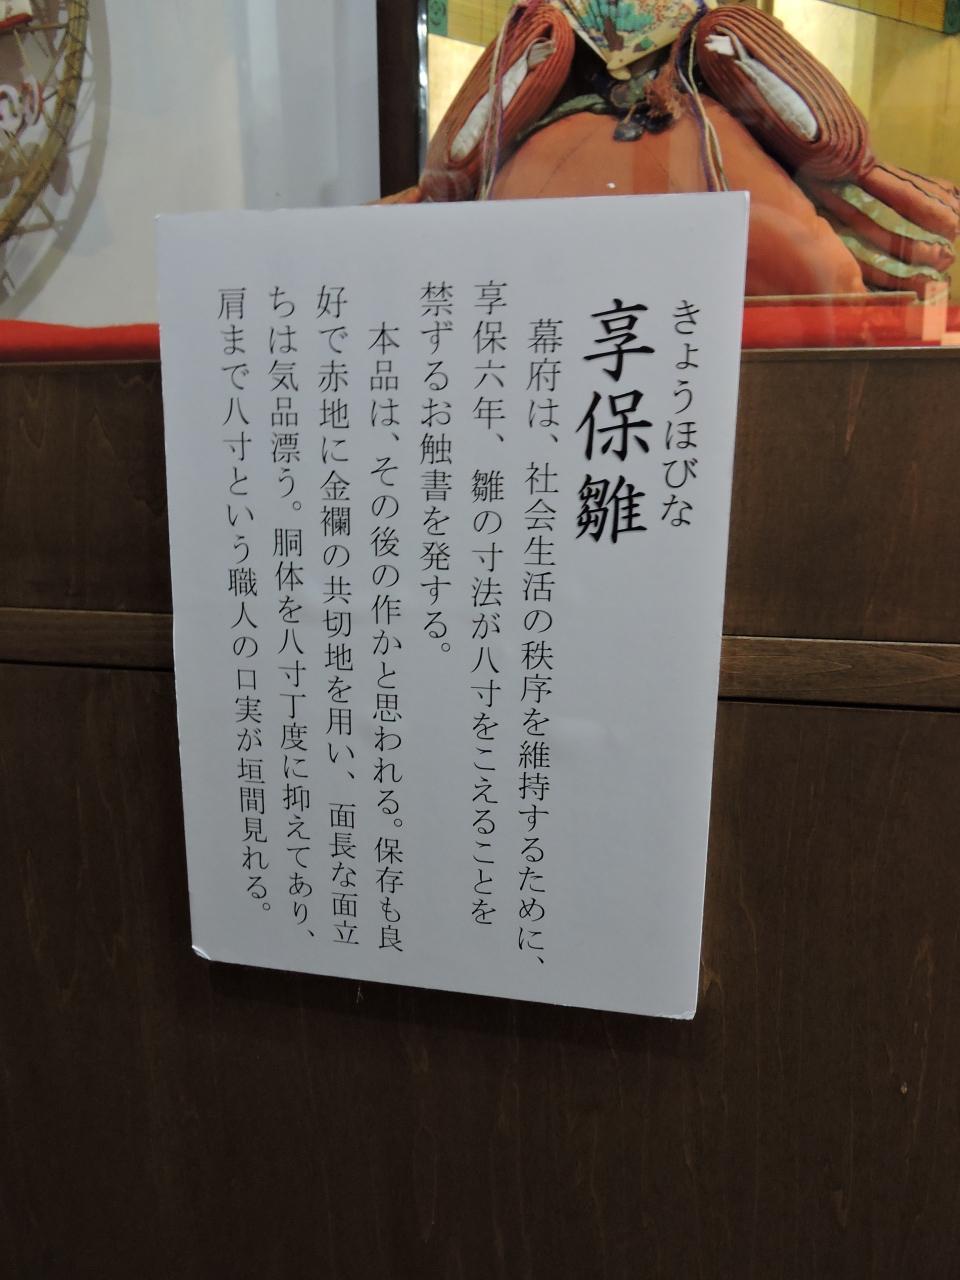 きょうほびな
享保雛
幕府は、社会生活の秩序を維持するために、
享保六年、雛の寸法が八寸をこえることを
禁ずるお触書を発する。
本品は、その後の作かと思われる。保存も良
好で赤地に金襴の共切地を用い、面長な面立
ちは気品漂う。胴体を八寸丁度に抑えてあり、
肩まで八寸という職人の口実が垣間見れる。